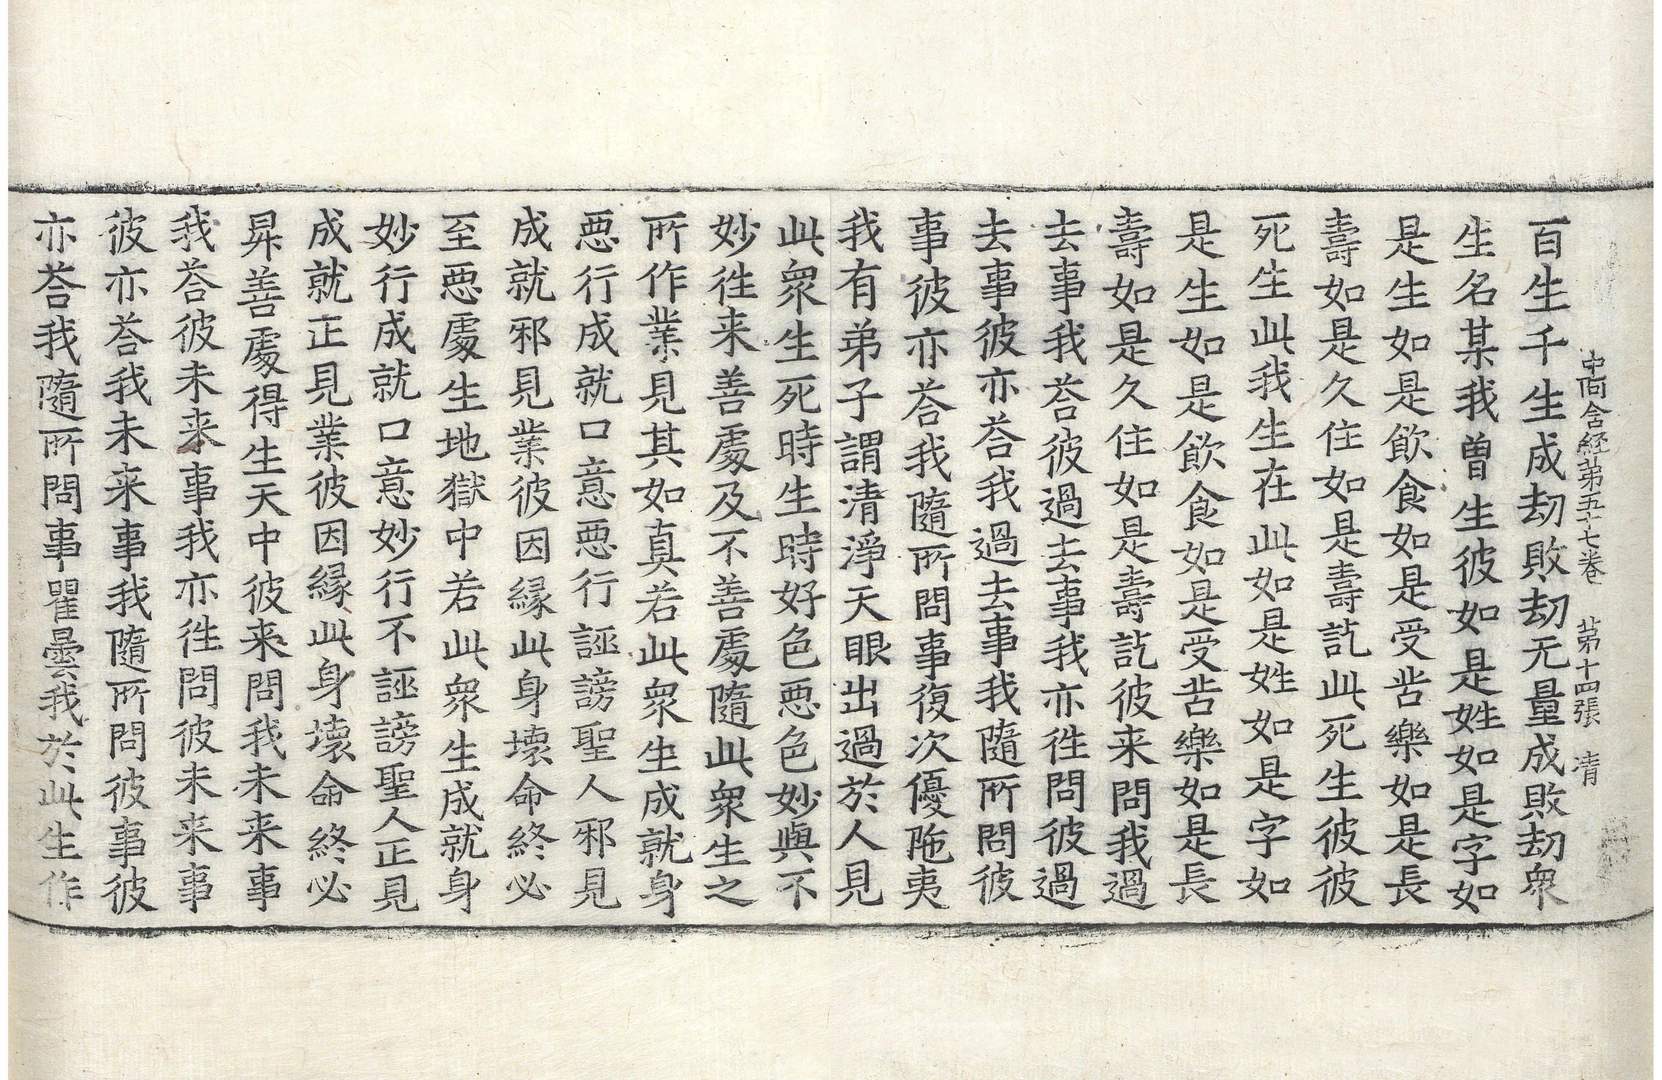 中阿含経第五十七卷 第十四張 清
百生千生成劫敗劫无量成敗劫衆
生名某我曽生彼如是姓如是字如
是生如是飲食如是受苦樂如是長
壽如是久住如是壽訖此死生彼彼
死生此我生在此如是姓如是字如
是生如是飲食如是受苦樂如是長
壽如是久住如是壽訖彼来問我過
去事我荅彼過去事我亦徃問彼過
去事彼亦荅我過去事我隨所問彼
事彼亦荅我隨所問事復次優陁夷
我有弟子謂清淨天眼出過於人見
此衆生死時生時好色悪色妙與不
妙徃来善處及不善處隨此衆生之
所作業見其如真若此衆生成就身
悪行成就口意悪行誣謗聖人邪見
成就邪見業彼因緣此身壞命終必
至悪處生地獄中若此衆生成就身
妙行成就口意妙行不誣謗聖人正見
成就正見業彼因緣此身壞命終必
昇善處得生天中彼来問我未来事
我荅彼未来事我亦徃問彼未来事
彼亦荅我未来事我隨所問彼事彼
亦荅我隨所問事瞿曇我於此生作